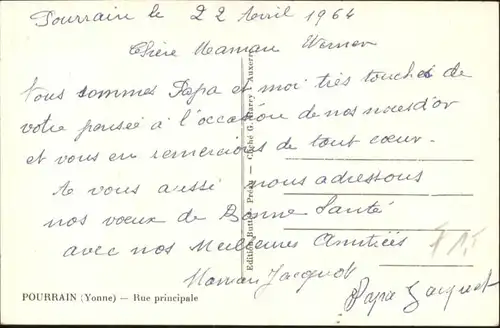 Pourrain le 22 Avril 1964
Chère Maman Werner
Nous sommes Papa et moi très touchés de
votre pensée à l'occasion de nos noces d'or
et vous en remercions de tout cœur.
A vous aussi nous adressons
nos vœux de Bonne Santé
avec nos Meilleures Amitiés
Maman Jacquot
Papa Jacquot
POURRAIN (Yonne) — Rue principale
Edition — Cliché G. Auxerre